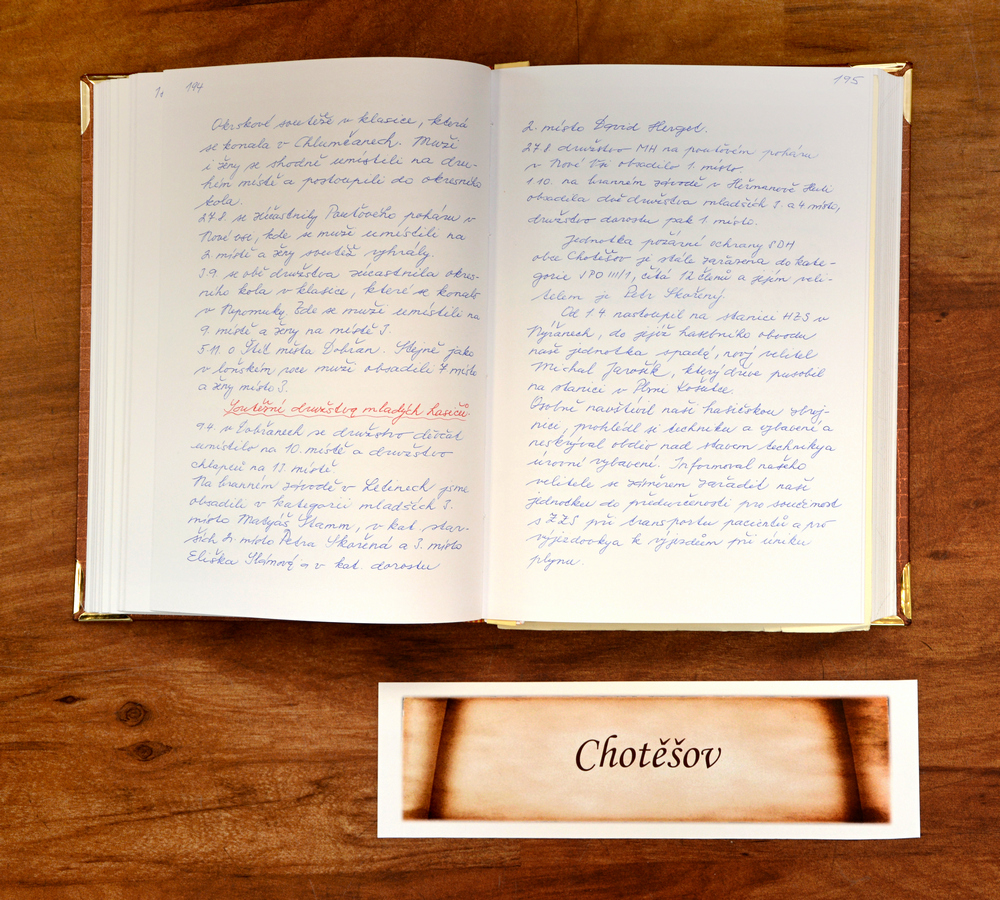 194
Okrskové soutěže v klasice, která
se konala v Chlumčanech. Muži
i ženy se shodně umístili na dru-
hém místě a postoupili do okresního
kola.
27.8. se zúčastnily Pouťového poháru v
Nové vsi, kde se muži umístili na
2. místě a ženy soutěž vyhrály.
3.9. se obě družstva zúčastnila okres-
ního kola v klasice, které se konalo
v Nepomuku. Zde se muži umístili na
9. místě a ženy na místě 3.
5.11. o Štít města Dobřan. Stejně jako
v loňském roce muži obsadili 7. místo
a ženy místo 3.
Soutěžní družstva mladých hasičů
9.4. v Dobřanech se družstvo děvčat
umístilo na 10. místě a družstvo
chlapců na 11 místě
Na branném závodě v Letinech jsme
obsadili v kategorii mladších 3.
místo Matyáš Stamm, v kat. star-
ších místo Petra Skořená a 3. místo
Eliška a v kat. dorostu
195
2. místo David Herget.
27.8. družstvo MH na pouťovém poháru
v Nové Vsi obsadilo 1. místo
1.10. na branném závodě v Heřmanově Huti
obsadila dvě družstva mladších 3. a 4. místo,
družstvo dorostu pak 1. místo.
Jednotka požární ochrany SDH
obce Chotěšov je stále zařazena do kate-
gorie JPO III/1, čítá 12 členů a jejím veli-
telem je Petr Skořený.
Od 1.4 nastoupil na stanici HZS v
Nýřanech, do jejíž hasebního obvodu
naše jednotka spadá, nový velitel
Michal Jarošík, který dříve působil
na stanici v Plzni Košutce.
Osobně navštívil naši hasičskou zbroj-
nici, prohlédl si techniku a vybavení a
neskrýval obdiv nad stavem techniky a
úrovní vybavení. Informoval našeho
velitele se záměrem zařadit naši
jednotku do předurčenosti pro součinnost
s ZZS při transportu pacientů a pro
k výjezdům při úniku
plynu.
Chotěšov